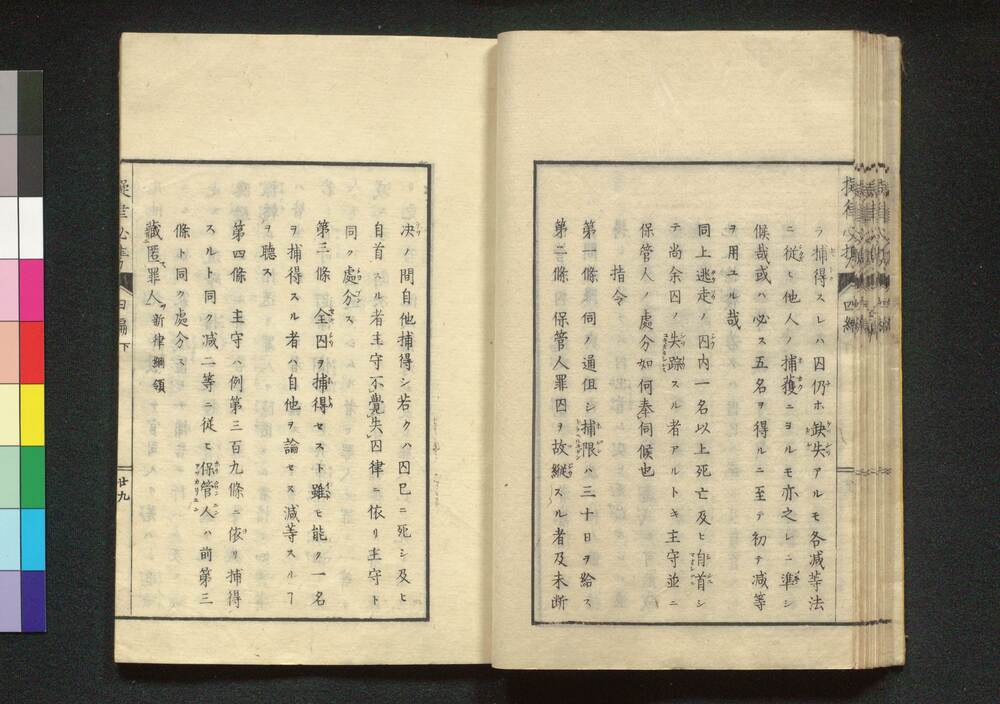 ラ捕得スレハ囚仍ホ缺失アルモ各减等法
ニ從ヒ他人ノ捕獲ニヨルモ亦之レニ準シ
候哉或ハ必ス五名ヲ得ルニ至テ初テ减等
ヲ用ユル哉
同上逃走ノ囚内一名以上死亡及ヒ自首シ
テ尚余囚ノ失踪スル者アルトキ主守並ニ
保管人ノ處分如何奉伺候也
指令
第一條伺ノ通但シ捕限ハ三十日ヲ給ス
第二條保管人罪囚ヲ故縱スル者及未斷
决ノ間自他捕得シ若クハ囚已ニ死シ及ヒ
自首スル者主守不覺失囚律ニ依リ主守ト
同ク處分ス
第三條全囚ヲ捕得セスト雖モ能ク一名
ヲ捕得スル者ハ自他ヲ論セス减等スルヿ
ヲ聽ス
第四條主守ハ例第三百九條ニ依リ捕得
スルト同ク减二等ニ従ヒ保管人ハ前第三
條ト同ク處分ス
藏匿罪人 新律綱領
四編 下
廿九